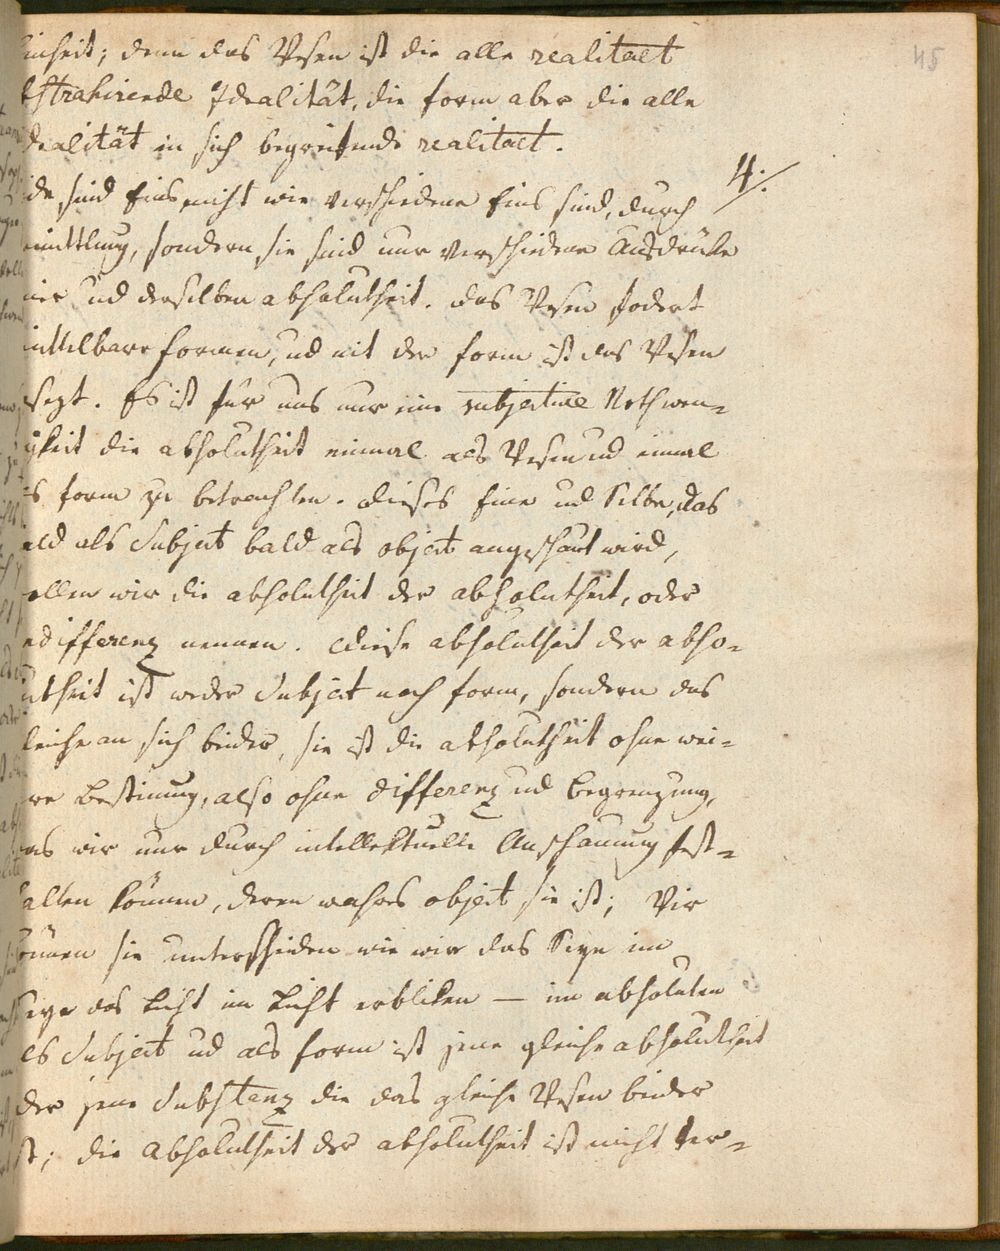 45
inheit; denn das Wesen ist die alle realitaet
bstrahirende Idealität, die form aber die alle
dealität in sich begreifende realitaet.
4:
ide sind Eins nicht wie verschiedene Eins sind, durch
mittlung, sondern sie sind nur verschiedene Ausdrüke
ner ud derselben absolutheit. das Wesen fodert
mittelbare formen, ud mit der form ist das Wesen
sezt. Es ist für uns nur eine subjective Nothwen=
gkeit die absolutheit einmal als Wesen ud einmal
s form zu betrachten. dieses Eine ud Selbe, das
ald als Subject bald als object angeschaut wird,
ollen wir die absolutheit der absolutheit, oder
ndifferenz nennen. diese absolutheit der abso=
utheit ist weder Subject noch form, sondern das
leiche an sich beider, sie ist die absolutheit ohne wei=
re Bestimung, also ohne differenz ud begrenzung,
as wir nur durch intellektuelle Anschauung fest=
alten können, deren wahres object sie ist; Wir
önnen sie unterscheiden wie wir das Seyn im
Seyn das Licht im Licht erbliken — im absoluten
als Subject ud als form ist jene gleiche absolutheit
oder jene Substanz die das gleiche Wesen beider
st; die absolutheit der absolutheit ist nicht ver=